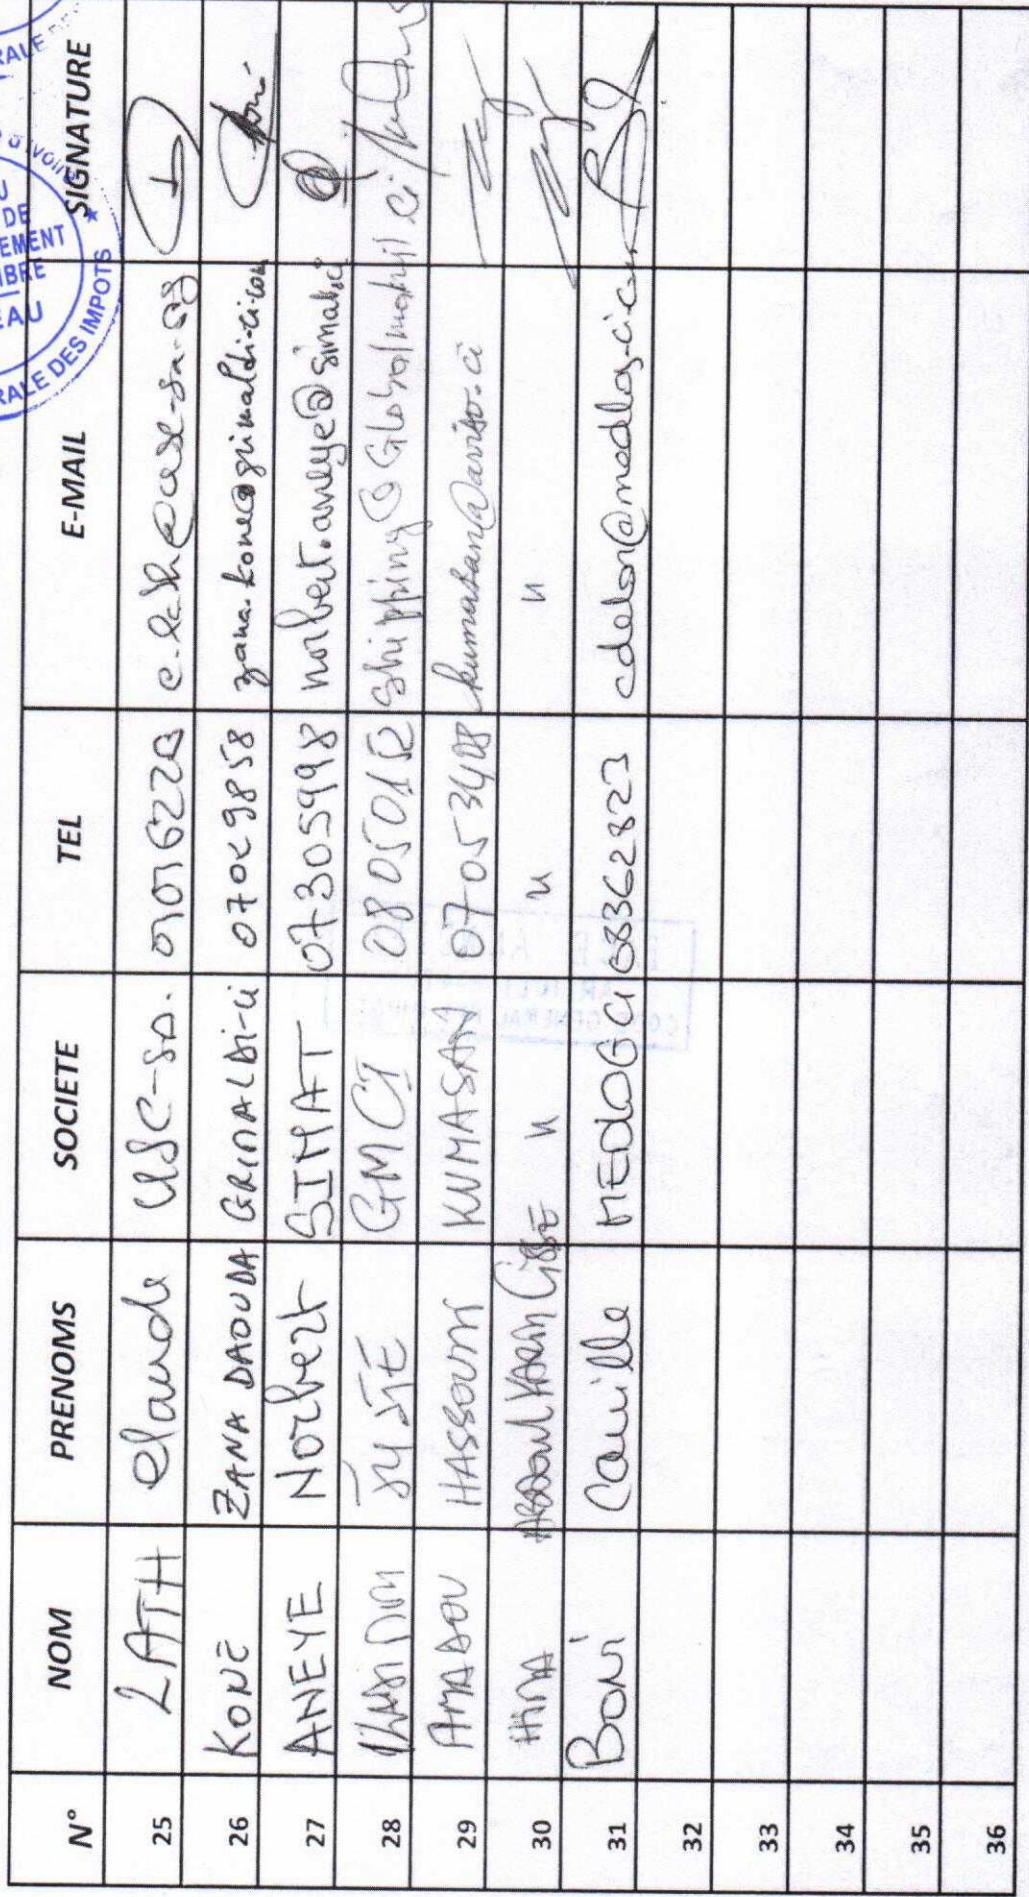 N° NOM PRENOMS SOCIETE TEL E-MAIL SIGNATURE
25 LATH Claude USC-sa.
26 KONE ZANA DAOUDA GRIMALDI-CI 07029858 zana.kone@grimaldi-ci.com
27 ANEYE Norbert SIMAT 07305998 norbert.aneye@simat.ci
28 JUSTE GMCI 08050152 Shipping@Globalmanil.ci
29 AMADOU HASSOUMI KUMASAN 07053408 kumasan@aviso.ci
30 HIMA ABDOUL KARIM CISSE " " "
31 BONI Camille MEDLOG CI cdelon@medlog-ci.com
32
33
34
35
36
DE
IMPOTS
RALE DES IMPOTS